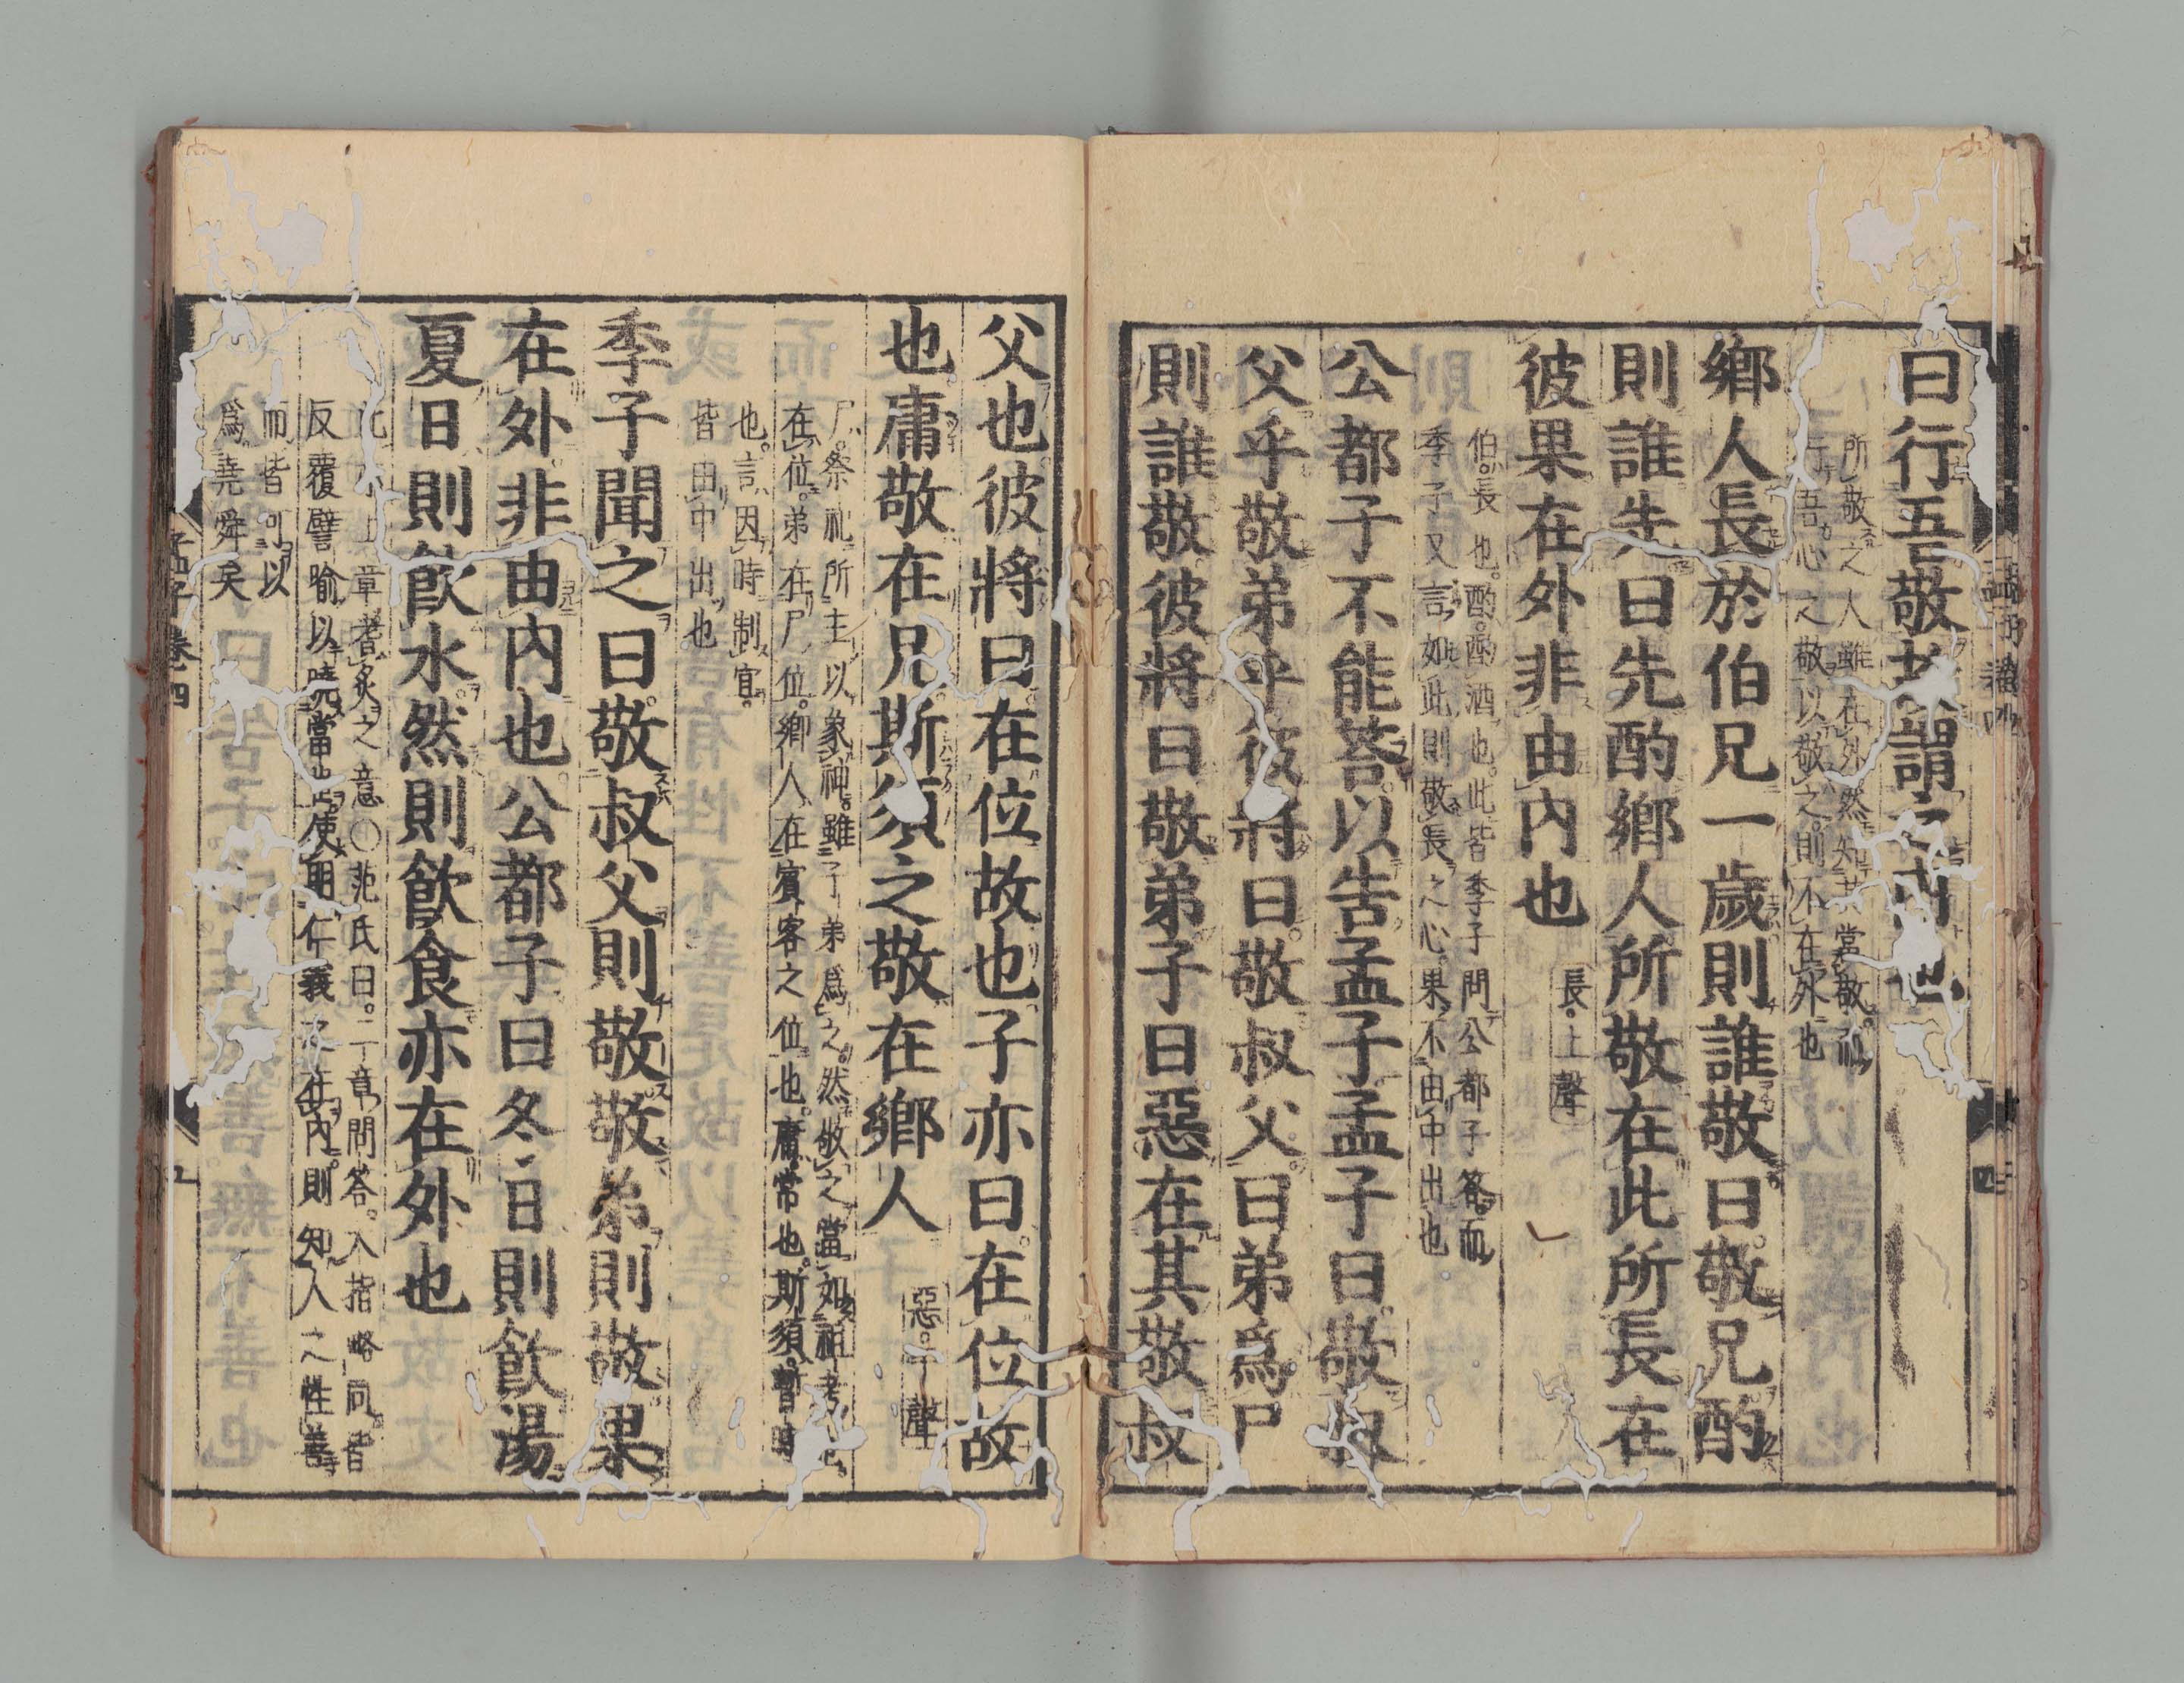 曰行吾敬故謂之内也
所敬之人雖在外然知其當敬而
行吾心之敬以敬之則不在外也
鄉人長於伯兄一歲則誰敬曰敬兄酌
則誰先曰先酌鄉人所敬在此所長在
彼果在外非由内也
長上聲
伯長也酌酌酒也此皆季子問公都子答而
季子又言如此則敬長之心果不由中出也
公都子不能答以告孟子孟子曰敬叔
父乎敬弟乎彼將曰敬叔父曰弟爲尸
則誰敬彼將曰敬弟子曰惡在其敬叔
父也彼將曰在位故也子亦曰在位故
也庸敬在兄斯須之敬在鄉人
惡平聲
尸祭祀所主以象神雖子弟爲之然敬之當如祖考也
在位弟在尸位鄉人在賓客之位也庸常也斯須暫時
也言因時制宜
皆由中出也
季子聞之曰敬叔父則敬敬弟則敬果
在外非由内也公都子曰冬日則飮湯
夏日則飮水然則飮食亦在外也
此亦上章耆炙之意○范氏曰二章問答大指略同皆
反覆譬喻以曉當世使明仁義之在内則知人之性善
而皆可以
爲堯舜矣
孟子 卷四